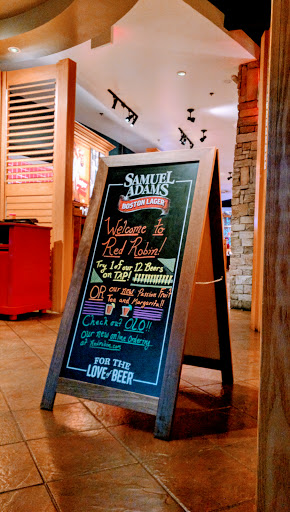 SAMUEL
ADAMS
BOSTON LAGER
Welcome to
Red Robin!
Try 1 of our 12 Beers
on TAP!
OR our new Passion Fruit
Tea and Margarita!!
Check out OLO!!
Our new online Ordering
at Redrobin.com
FOR THE
LOVE of BEER